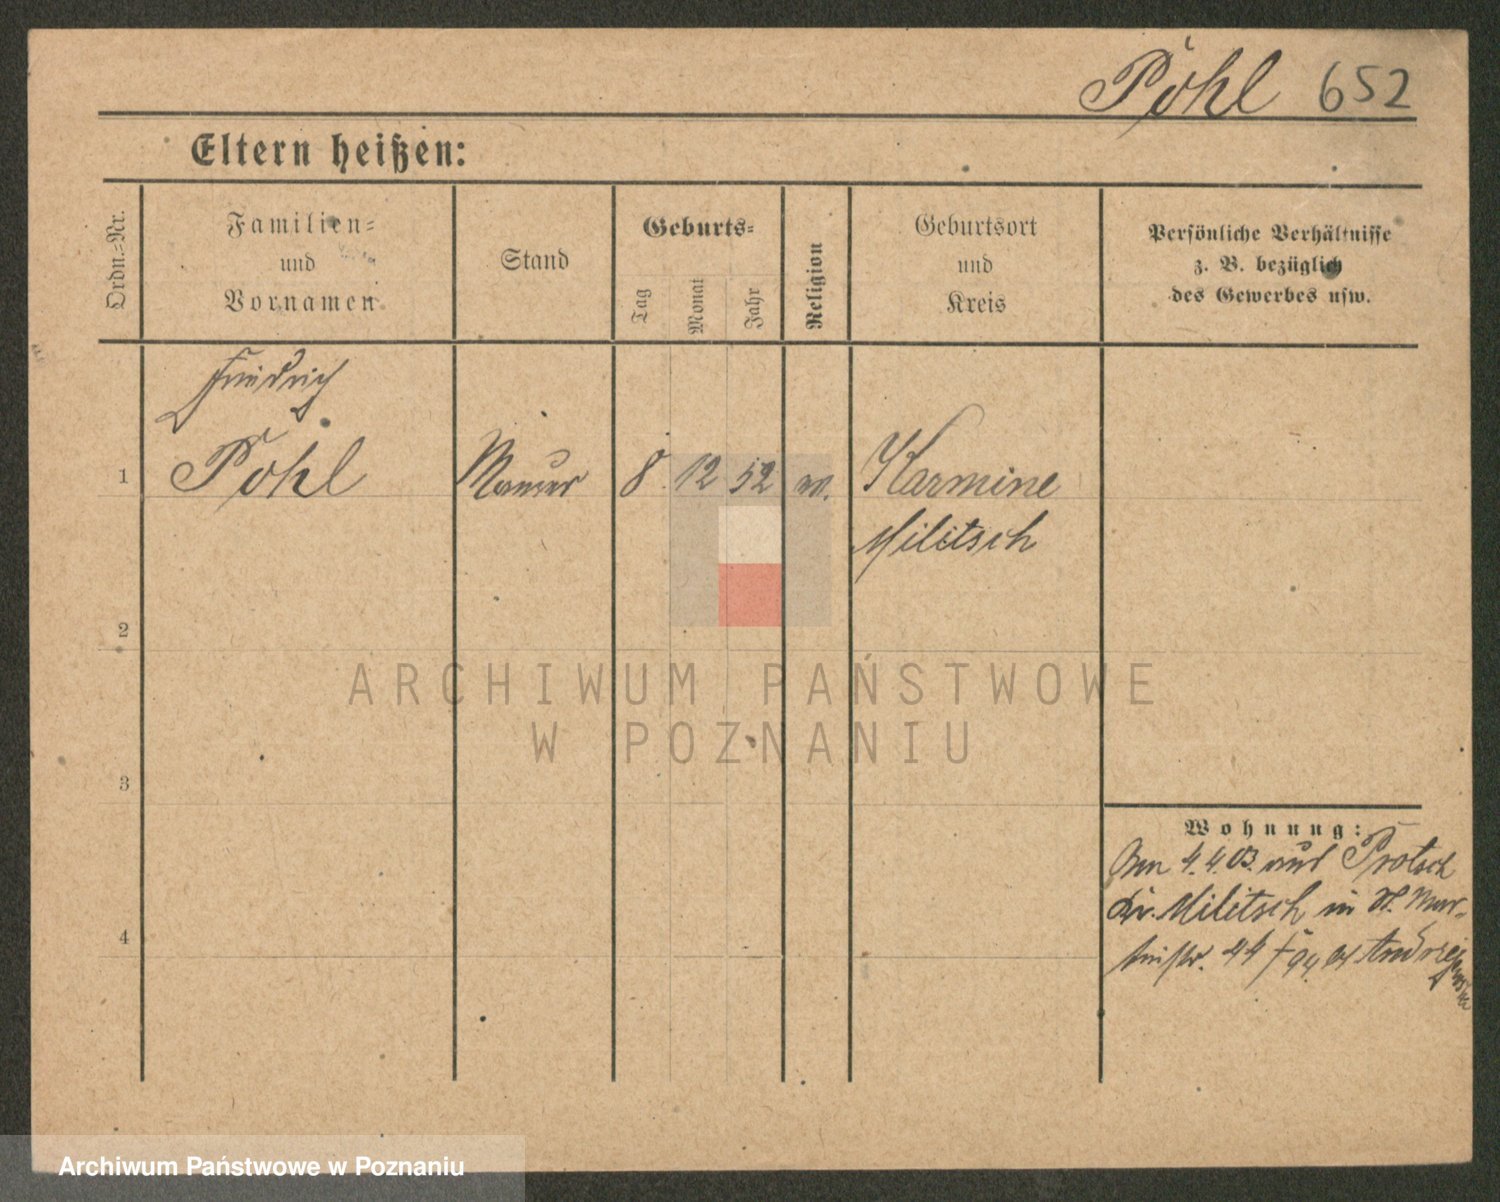 Pohl 652
Eltern heißen:
Ordn.=Nr.
Familien=
und
Vornamen
Stand
Geburts=
Tag
Monat
Jahr
Religion
Geburtsort
und
Kreis
Persönliche Verhältnisse
z. B. bezüglich
des Gewerbes usw.
Friedrich
1 Pohl Maurer 8. 12 52 Karmine
Militsch
2
3
4
Wohnung:
Am 4.4.03. aus Protsch
Kr. Militsch in St. Mar-
tinstr. 44
ARCHIWUM PAŃSTWOWE
W POZNANIU
Archiwum Państwowe w Poznaniu